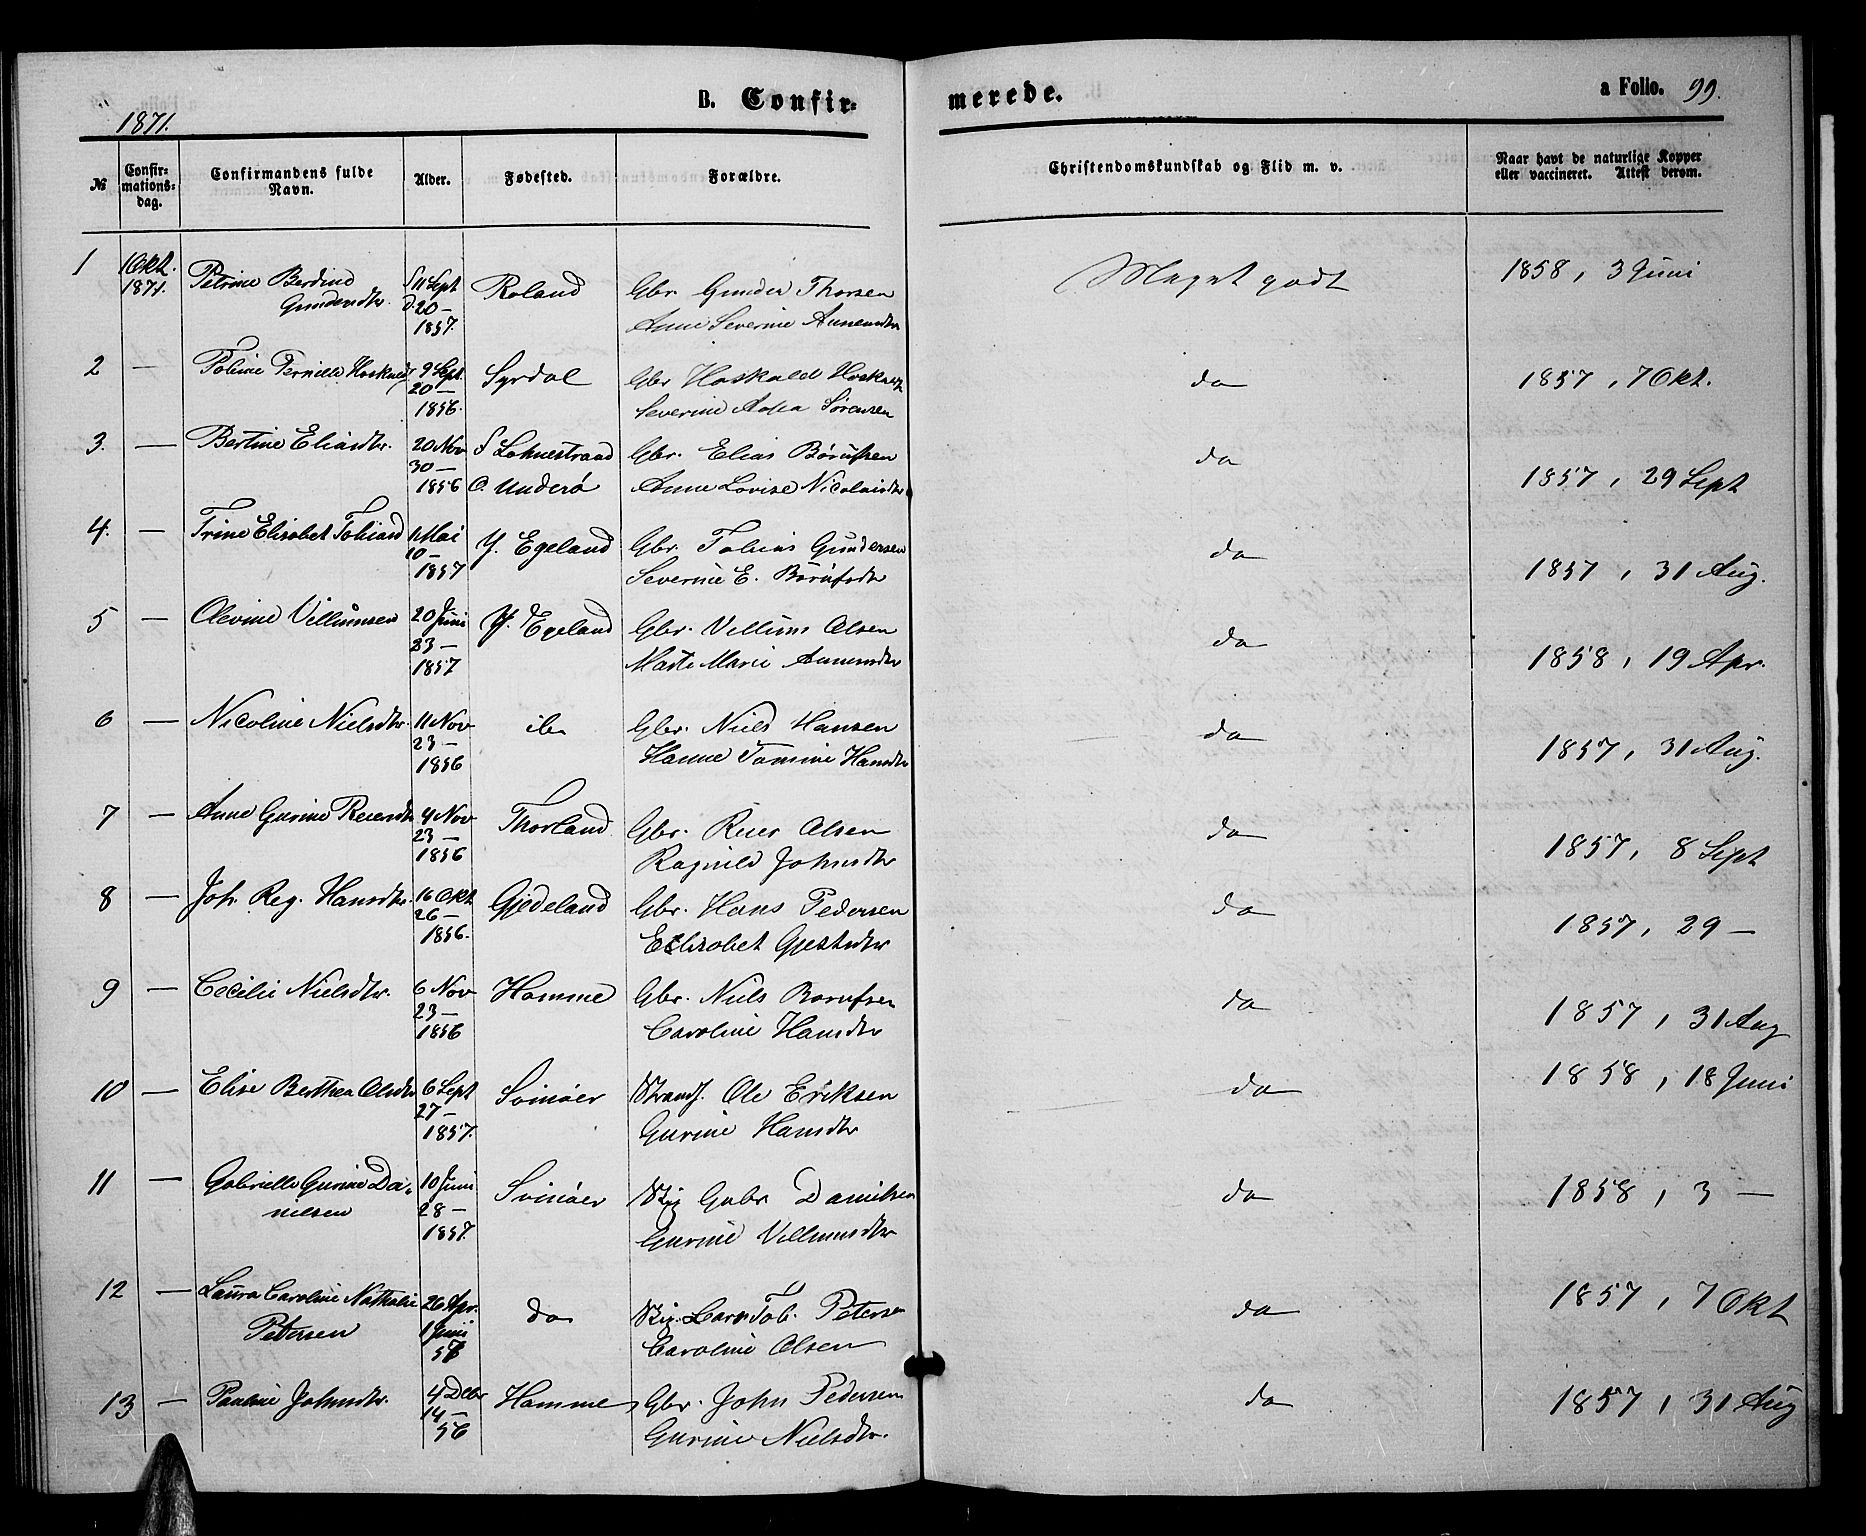 1871.
B. Confirmerede.
a Folio. 99.
№
Confirmationsdag.
Confirmandens fulde Navn.
Alder.
Fødested.
Forældre.
Christendomskundskab og Flid m. v.
Naar havt de naturlige Kopper eller vaccineret. Attest derom.
1 1 Okt. 1871. Petrine Berdine Gundersdtr. f 11 Sept D. 20 — 1857. Roland Gbr. Gunder Thorsen
Anne Severine Aanensdtr
Meget godt 1858, 3 Juni
2 — Tobine Pernille Hoskuldz 9 Sept. 20 — 1856. Syrdal Gbr Hoskuld Hosk
Severine Sørensen
do 1857, 7 Okt.
3. — Bertine Eliasdtr. 20 Nov 30 — 1856 f Lohnestrand D. Underø Gbr. Elias Børufsen
Anne Lovise Nicolaisdtr
do 1857, 29 Sept
4. — Trine Elisabet Tobiasd 1 Mai 10 — 1857 Y. Egeland Gbr. Tobias Gundersen
Severine E. Børufsdtr
do 1857, 31 Aug.
5 — Olevine Villumsen 20 Juni 23 — 1857 Y. Egeland Gbr. Villum Olsen
Marte Marie Aanensdtr
do 1858, 19 Apr.
6 — Nicoline Nielsdtr. 11 Nov 23 — 1856 ib. Gbr. Niels Hansen
Hanne Tomine Hansdtr
do 1857, 31 Aug.
7 — Anne Gurine Reiersdtr 4 Nov 23 — 1856 Thorland Gbr. Reier Olsen
Ragnild Johnsdtr
do 1857, 8 Sept
8 — Joh. Reg. Hansdtr. 16 Okt 26 — 1856. Gjedeland Gbr. Hans Pedersen
Elisabet Gjestsdtr
do 1857, 29 —
9 — Cecilie Nielsdtr. 6 Nov 23 — 1856 Homme Gbr. Niels Borufsen
Caroline Hansdtr
do 1857, 31 Aug
10 — Elise Berthea Olsdtr 6 Sept 27 — 1857. Svinøer Strands. Ole Eriksen
Gurine Hansdtr
do 1858, 18 Juni
11 — Gabrielle Gurine Danielsen 10 Juni 28 — 1857. Svinøer Gabr. Danielsen
Gurine Villumsdtr
do 1858, 3 —
12 — Laura Caroline Nathalie Petersen 26 Apr. 1 Juni 57 do Lars Tob. Petersen
Caroline Olsen
do 1857, 7 Okt
13 — Pauline Johnsdtr. 4 Decbr 14 — 56 Homme Gbr. John Pedersen
Gurine Nielsdtr.
do 1857, 31 Aug